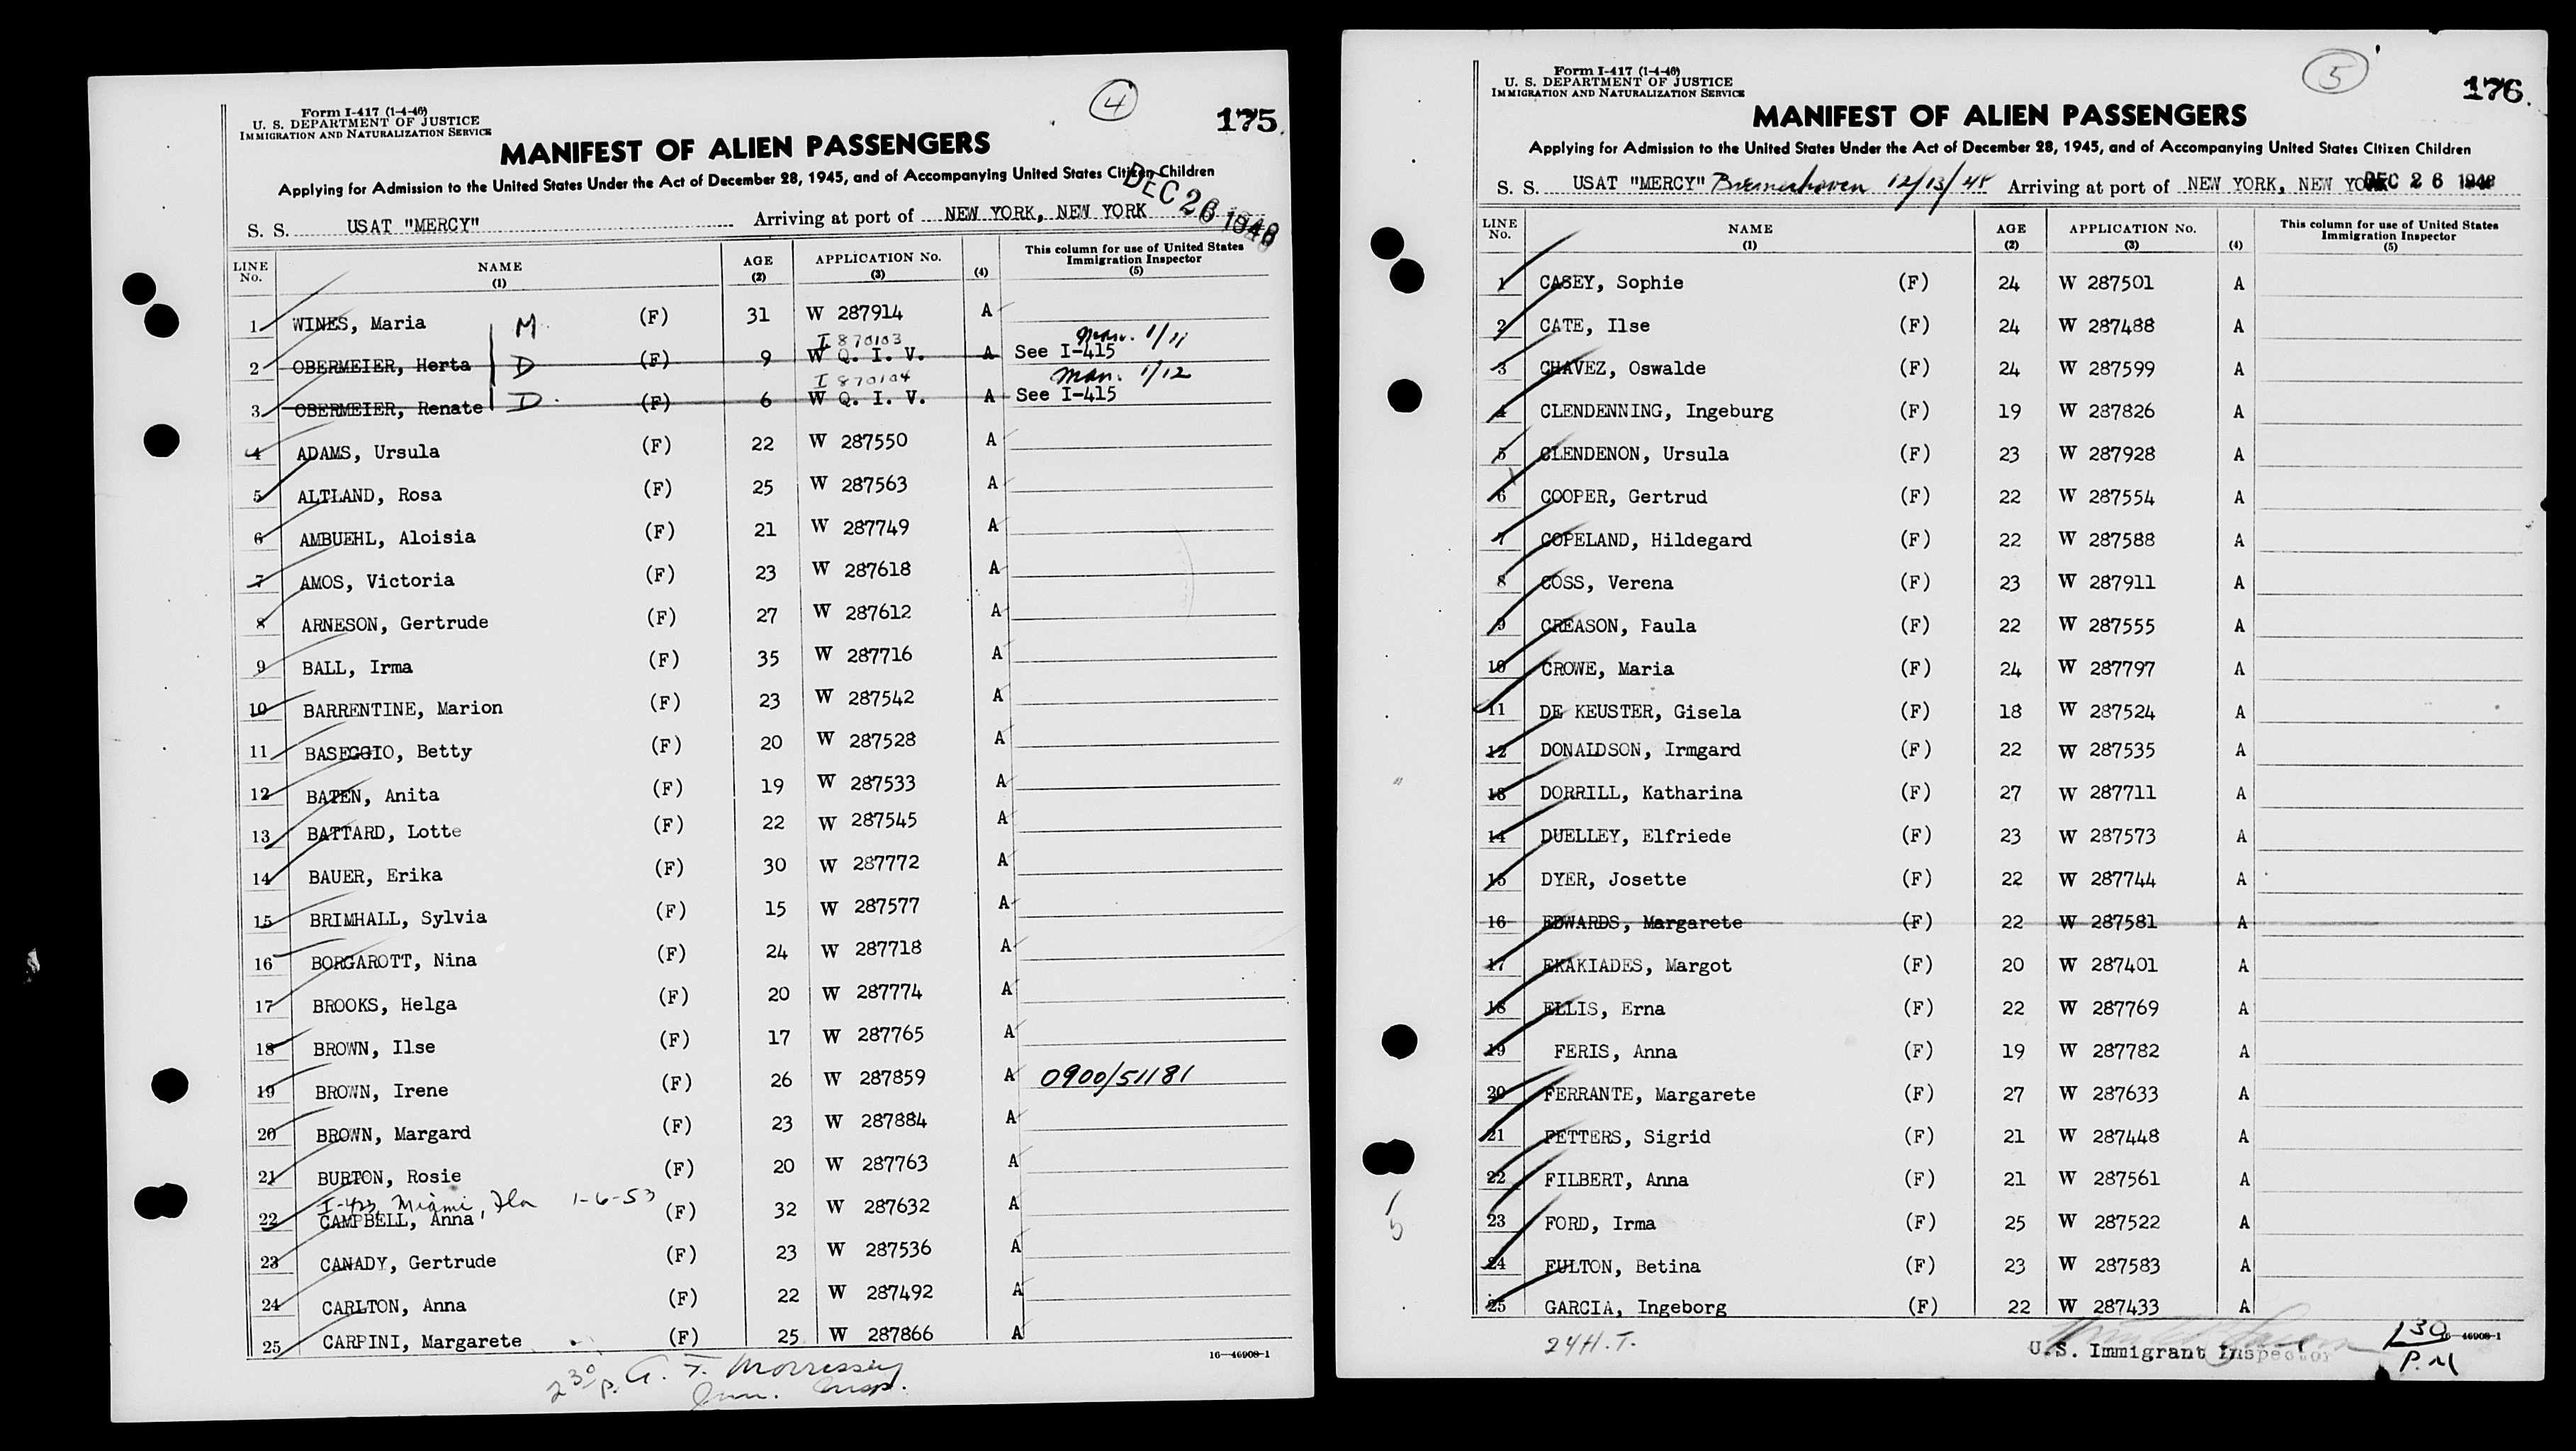 Form I-417 (1-4-46)
U. S. DEPARTMENT OF JUSTICE
IMMIGRATION AND NATURALIZATION SERVICE
4
175
MANIFEST OF ALIEN PASSENGERS
Applying for Admission to the United States Under the Act of December 28, 1945, and of Accompanying United States Citizen Children
DEC 26 1948
S. S. USAT "MERCY" Arriving at port of NEW YORK, NEW YORK
LINE No. NAME (1) AGE (2) APPLICATION No. (3) (4) This column for use of United States Immigration Inspector (5)
1 WINES, Maria M. (F) 31 W 287914 A
I 870103 Man. 1/11
2 OBERMEIER, Herta D (F) 9 W Q. I. V. A See I-415
I 870104 Man. 1/12
3 OBERMEIER, Renate D. (F) 6 W Q. I. V. A See I-415
4 ADAMS, Ursula (F) 22 W 287550 A
5 ALTLAND, Rosa (F) 25 W 287563 A
6 AMBUEHL, Aloisia (F) 21 W 287749 A
7 AMOS, Victoria (F) 23 W 287618 A
8 ARNESON, Gertrude (F) 27 W 287612 A
9 BALL, Irma (F) 35 W 287716 A
10 BARRENTINE, Marion (F) 23 W 287542 A
11 BASEGGIO, Betty (F) 20 W 287528 A
12 BATEN, Anita (F) 19 W 287533 A
13 BATTARD, Lotte (F) 22 W 287545 A
14 BAUER, Erika (F) 30 W 287772 A
15 BRIMHALL, Sylvia (F) 15 W 287577 A
16 BORGAROTT, Nina (F) 24 W 287718 A
17 BROOKS, Helga (F) 20 W 287774 A
18 BROWN, Ilse (F) 17 W 287765 A
19 BROWN, Irene (F) 26 W 287859 A 0900/51181
20 BROWN, Margard (F) 23 W 287884 A
21 BURTON, Rosie (F) 20 W 287763 A
I-423 Miami, Fla 1-6-53
22 CAMPBELL, Anna (F) 32 W 287632 A
23 CANADY, Gertrude (F) 23 W 287536 A
24 CARLTON, Anna (F) 22 W 287492 A
25 CARPINI, Margarete (F) 25 W 287866 A
16—46908-1
2 30 P. G. F. Morrissey
Imm. Insp.
Form I-417 (1-4-46)
U. S. DEPARTMENT OF JUSTICE
IMMIGRATION AND NATURALIZATION SERVICE
5
176.
MANIFEST OF ALIEN PASSENGERS
Applying for Admission to the United States Under the Act of December 28, 1945, and of Accompanying United States Citizen Children
S. S. USAT "MERCY" Bremerhaven 12/13/48 Arriving at port of NEW YORK, NEW YORK DEC 26 1948
LINE No. NAME (1) AGE (2) APPLICATION No. (3) (4) This column for use of United States Immigration Inspector (5)
1 CASEY, Sophie (F) 24 W 287501 A
2 CATE, Ilse (F) 24 W 287488 A
3 CHAVEZ, Oswalde (F) 24 W 287599 A
4 CLENDENNING, Ingeburg (F) 19 W 287826 A
5 CLENDENON, Ursula (F) 23 W 287928 A
6 COOPER, Gertrud (F) 22 W 287554 A
7 COPELAND, Hildegard (F) 22 W 287588 A
8 COSS, Verena (F) 23 W 287911 A
9 CREASON, Paula (F) 22 W 287555 A
10 CROWE, Maria (F) 24 W 287797 A
11 DE KEUSTER, Gisela (F) 18 W 287524 A
12 DONALDSON, Irmgard (F) 22 W 287535 A
13 DORRILL, Katharina (F) 27 W 287711 A
14 DUELLEY, Elfriede (F) 23 W 287573 A
15 DYER, Josette (F) 22 W 287744 A
16 EDWARDS, Margarete (F) 22 W 287581 A
17 EKAKIADES, Margot (F) 20 W 287401 A
18 ELLIS, Erna (F) 22 W 287769 A
19 FERIS, Anna (F) 19 W 287782 A
20 FERRANTE, Margarete (F) 27 W 287633 A
21 FETTERS, Sigrid (F) 21 W 287448 A
22 FILBERT, Anna (F) 21 W 287561 A
23 FORD, Irma (F) 25 W 287522 A
24 FULTON, Betina (F) 23 W 287583 A
25 GARCIA, Ingeborg (F) 22 W 287433 A
24 H. T.
U.S. Immigrant Inspector
1 30 P.M
16—46908-1